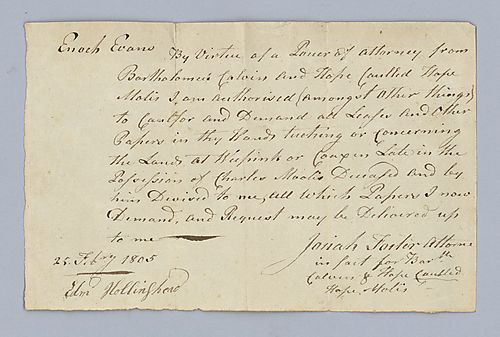 Enoch Evans By Virtue of a Power of attorney from
Bartholomew Calvin and Hope Caulled Hope
Molis I, am authorised (amongst other things)
to Caul for and Demand all Leases And Other
Papers in thy Hands tuching or Concerning
the Lands at or Late in the
Possession of Charles Moolis Deceased and by
him Divised to me, all which Papers I now
Demand, and Request may be Delivered up
to me
25 Febry 1805
Josiah Foster Attorne
in fact for Barth
Calvin & Hope Caulled
Hope Molis
Edm Hollinshead